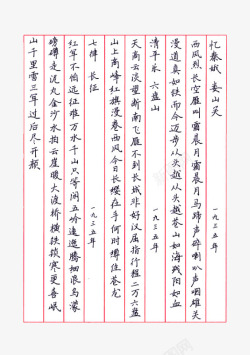 忆秦娥 娄山关
西风烈长空雁叫霜晨月霜晨月马蹄声碎喇叭声咽雄关
漫道真如铁而今迈步从头越从头越苍山如海残阳如血
清平乐 六盘山 一九三五年
天高云淡望断南飞雁不到长城非好汉屈指行程二万六盘
山上高峰红旗漫卷西风今日长缨在手何时缚住苍龙
七律 长征 一九三五年
红军不怕远征难万水千山只等闲五岭逶迤腾细浪乌蒙
磅礴走泥丸金沙水拍云崖暖大渡桥横铁索寒更喜岷
山千里雪三军过后尽开颜